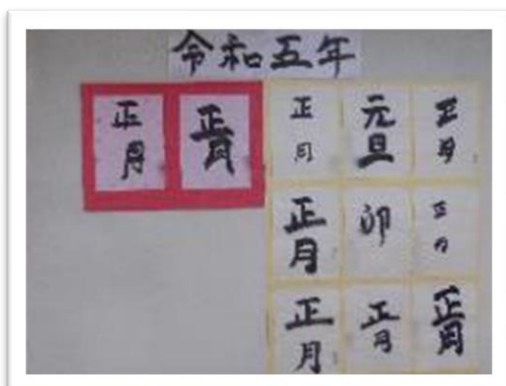 令和五年
正月
正月
正月
元旦
正月
正月
卯
正月
正月
正月
正月